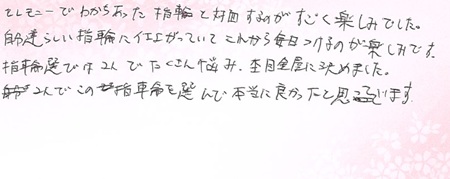 セレモニーでわかちあった指輪と対面するのがすごく楽しみでした。
素晴らしい指輪に仕上がっていてこれから毎日つけるのが楽しみです。
指輪選びは2人でたくさん悩み、杢目金屋に決めました。
2人でこの指輪を選んで本当に良かったと思っています。